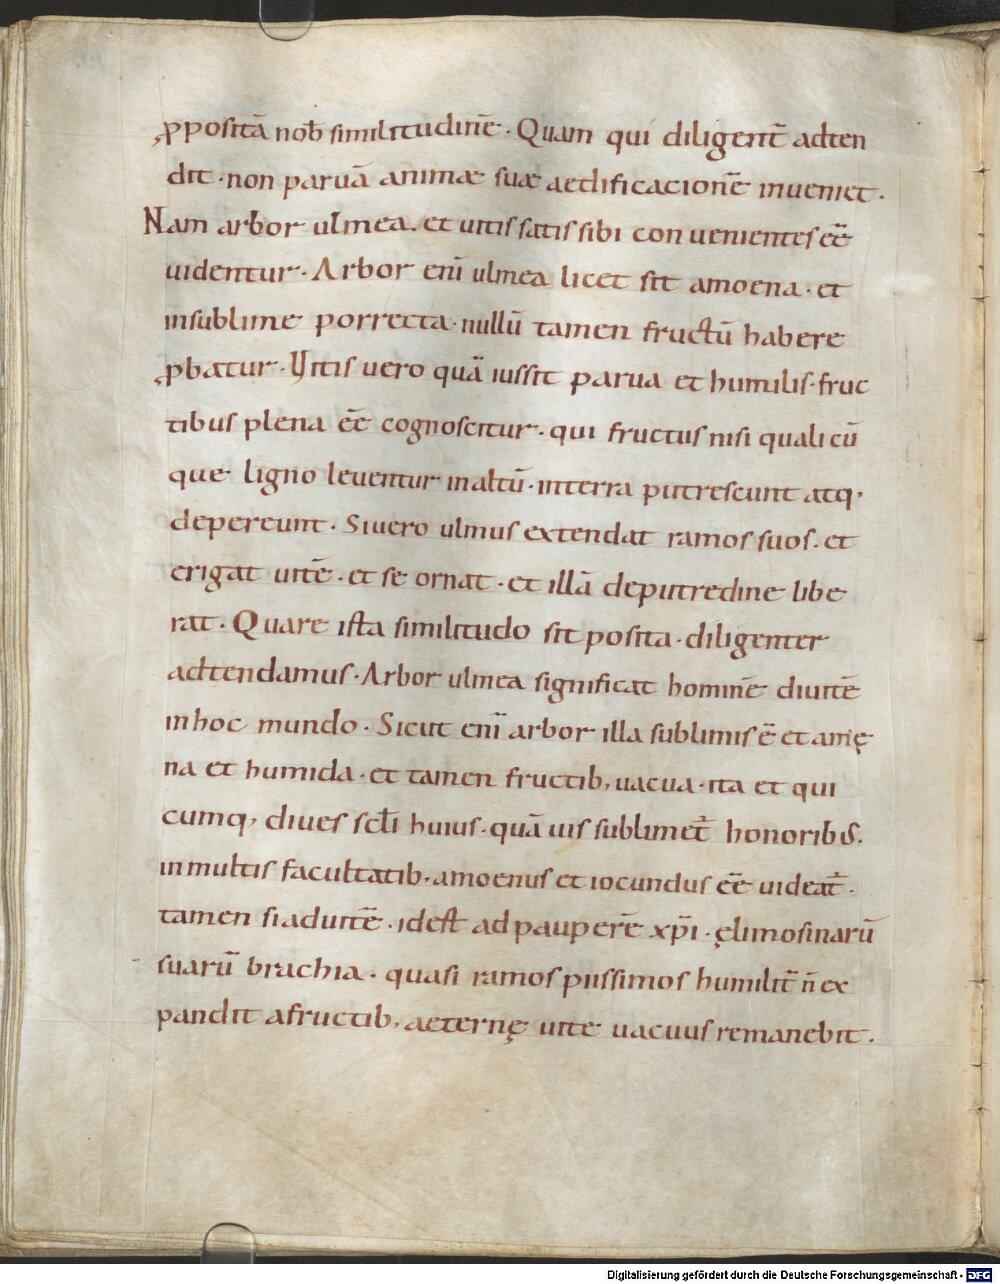 ꝓpositā nob̄ similitudinē. Quam qui diligent̄ adten
dit. non paruā animæ suæ aedificacionē inueniet.
Nam arbor ulmea. et uitis satis sibi conuenientes eē
uidentur. Arbor enī ulmea licet sit amoena. et
insublime porrecta. nullū tamen fructū habere
ꝓbatur. Vitis uero quā iussit parua et humilis. fruc
tibus plena eē cognoscitur. qui fructus nisi qualicū
que ligno leuentur inaltū. interra putrescunt atq·
depereunt. Siuero ulmus extendat ramos suos. et
erigat uitē. et se ornat. et illā deputredine libe
rat. Quare ista similitudo sit posita. diligenter
adtendamus. Arbor ulmea significat hominē diuitē
inhoc mundo. Sicut enī arbor illa sublimis ē et amę
na et humida. et tamen fructib, uacua. ita et qui
cumq, diues scl̄i huius. quā uis sublimet̄ honoribus.
in multis facultatib. amoenus et iocundus eē uideat̄.
tamen siaduitē. idest ad pauperē xp̄i. ęlimosinarū
suarū brachia. quasi ramos piissimos humilit̄ n̄ ex
pandit afructib, aeternę uite uacuus remanebit.
Digitalisierung gefördert durch die Deutsche Forschungsgemeinschaft - DFG